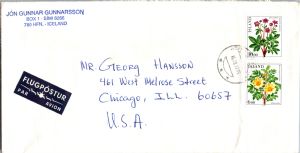 JÓN GUNNAR GUNNARSSON
BOX 1 - SÍMI 8266
780 HFN. - ICELAND
FLUGPÓSTUR
PAR AVION
ÍSLAND
ÍSLAND
MR. GEORG HANSSON
461 WEST MELROSE STREET
CHICAGO, ILL. 60657
U.S.A.